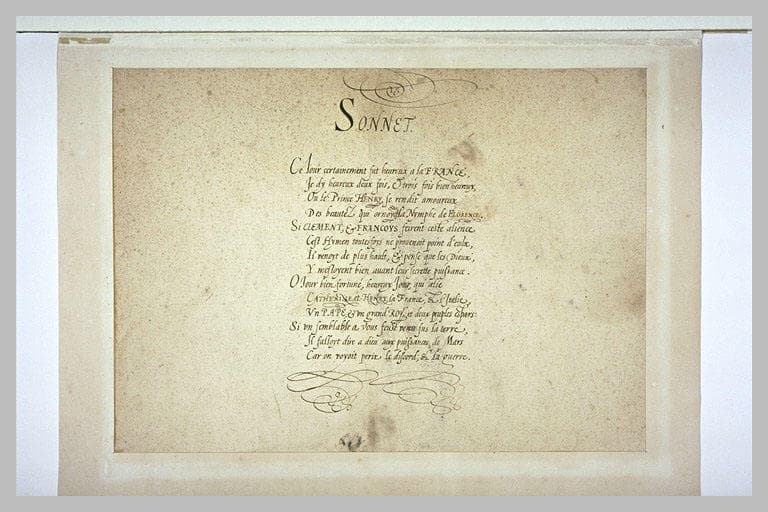 SONNET.
Ce Jour certainement fut heureux a la FRANCE,
Je dy heureux deux fois, & trois fois bien heureux,
Ou le Prince HENRY, se rendit amoureux
Des beautez qui ornoyent la Nymphe de FLORENCE.
Si CLEMENT, & FRANCOYS feirent ceste alience,
Cest Hymen toutesfoys ne provenoit point d'eulx,
Il venoyt de plus hault, & pense que les Dieux,
Y mesloyent bien avant leur secrette puissance.
O Jour bien fortuné, heureux Jour, qui alie
CATHERINE et HENRY, la France, & l'Italie,
Vn PAPE & vn grand ROY, et deux peuples espars:
Si vn semblable a vous feust venu sus la terre,
Il falloyt dire a dieu aux puissances de Mars
Car on voyoit perir le discord, & la guerre.